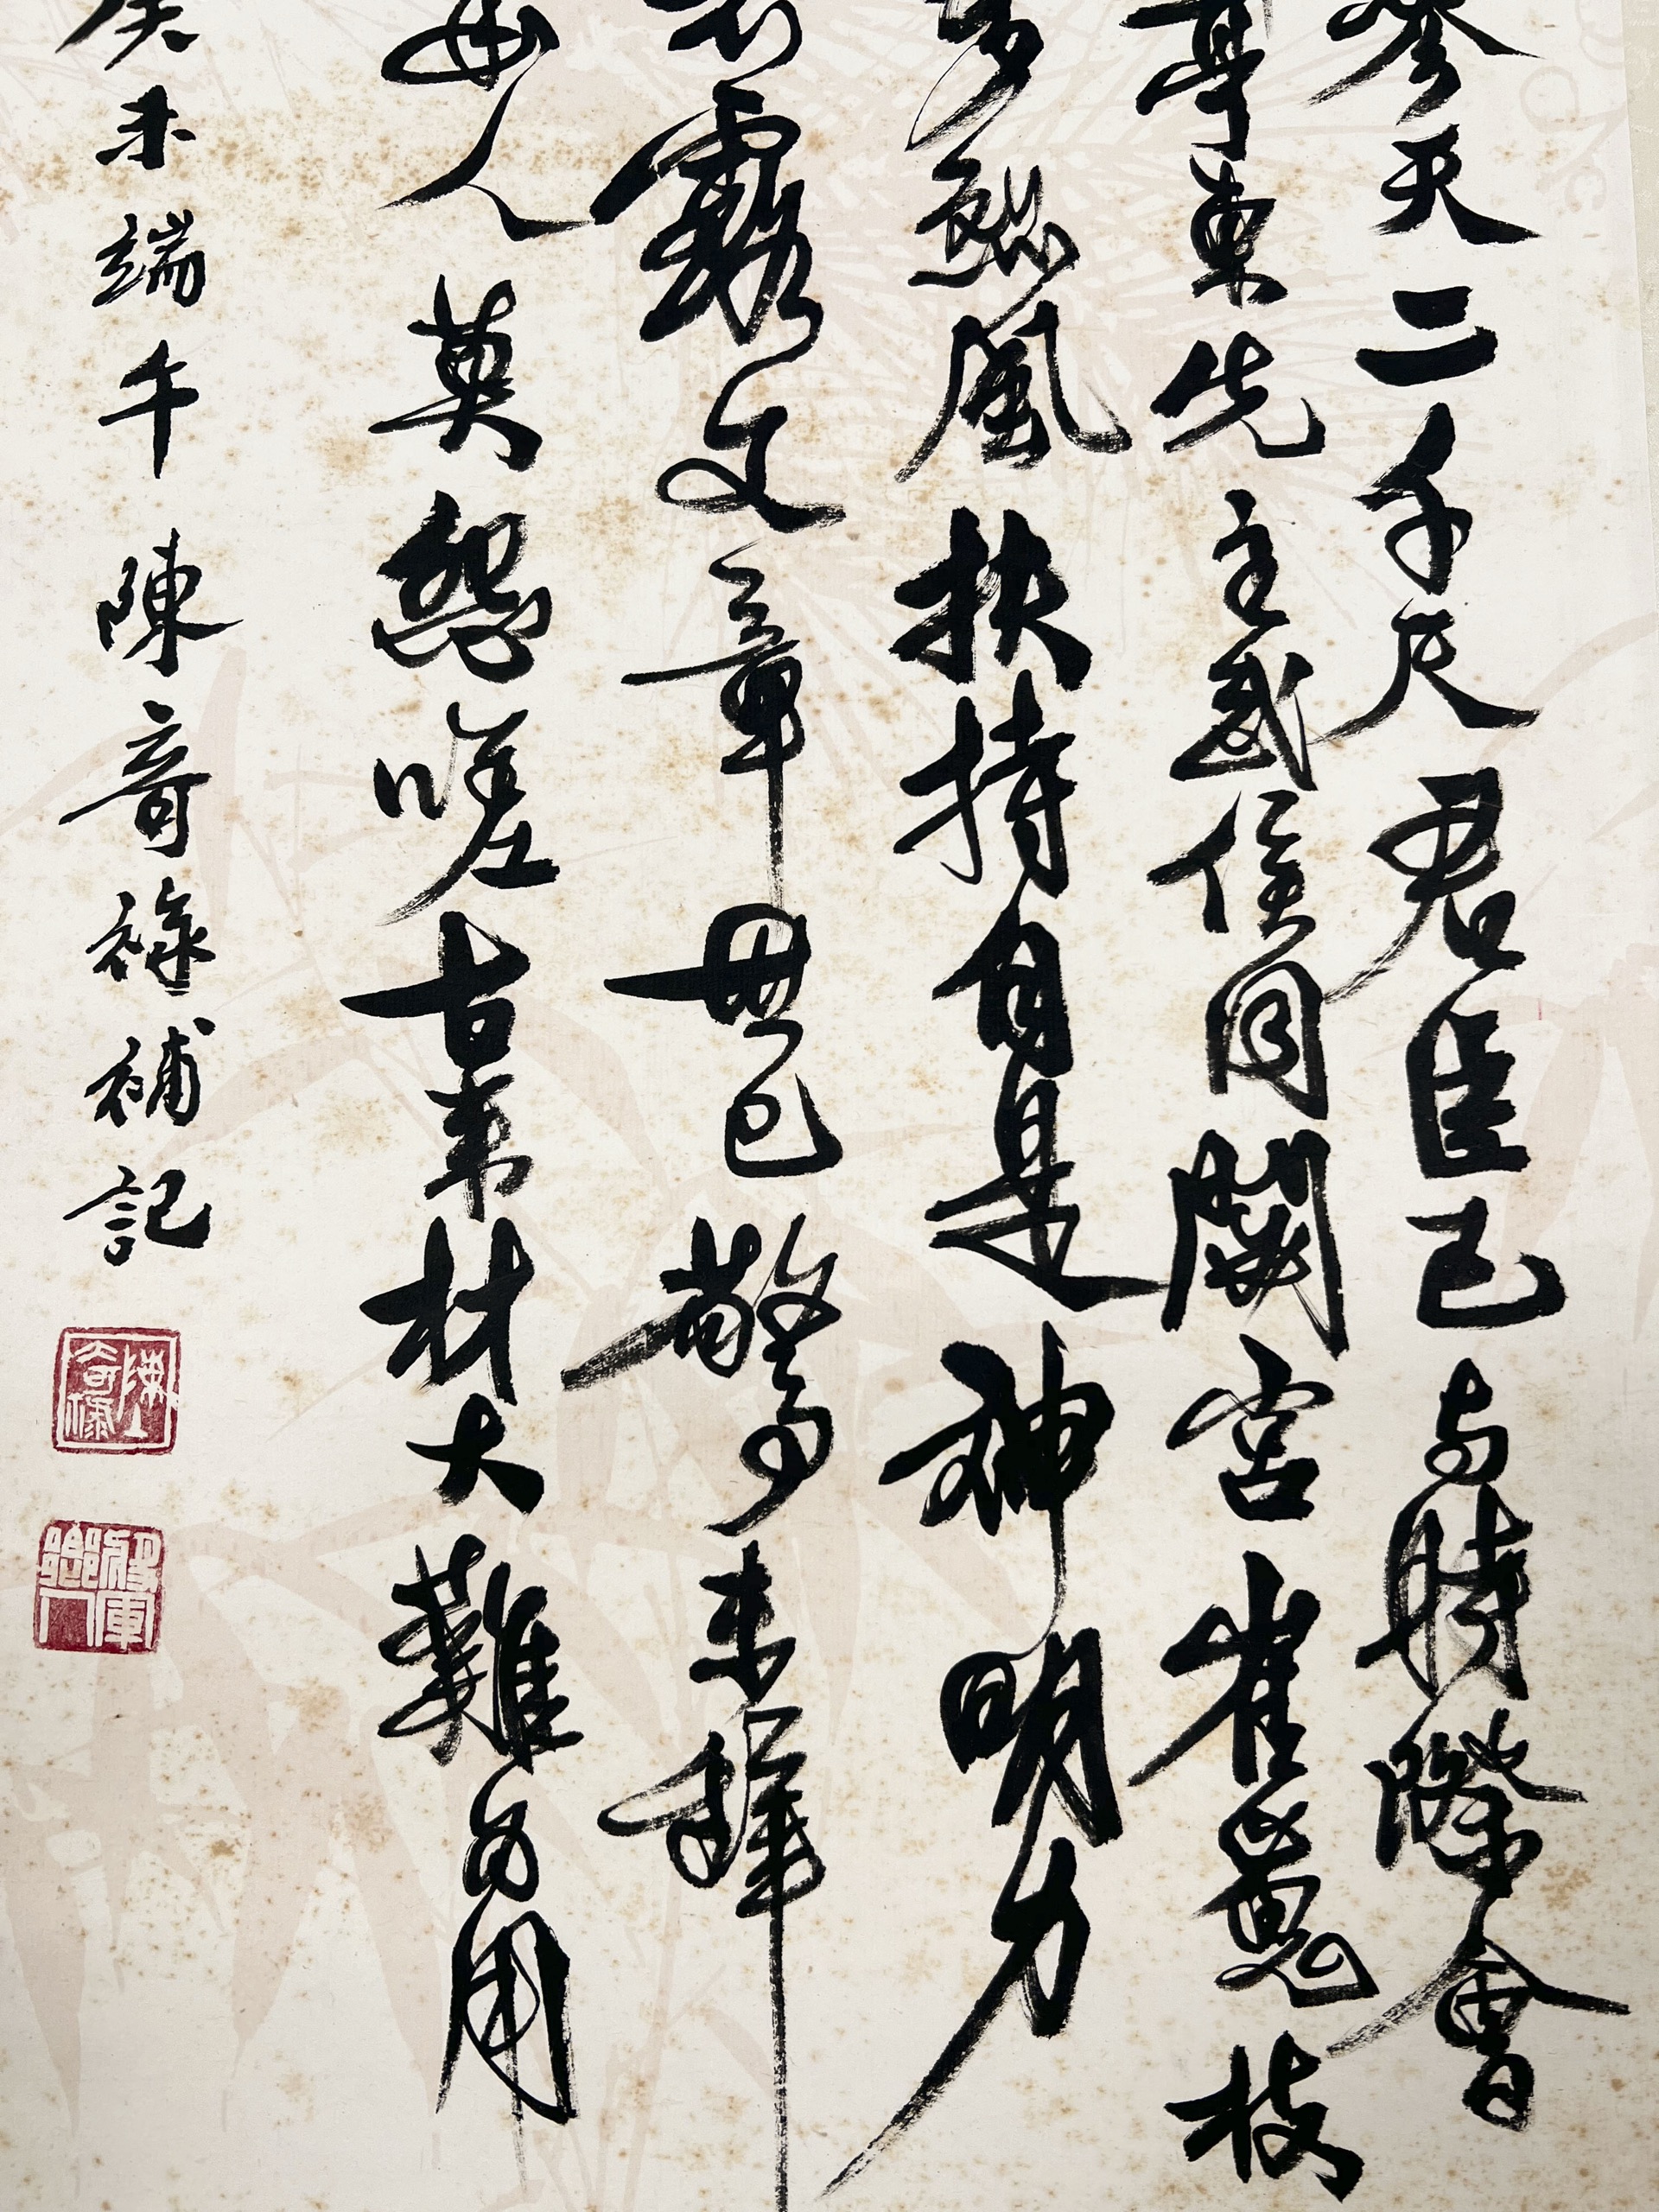 參天二千尺君臣已与時際會
亭東先主武侯同閟宮崔嵬枝
多烈風扶持自是神明力
不露文章世已驚未辭
幽人莫怨嗟古來材大難為用
癸未端午陳奇祿補記
陳奇祿